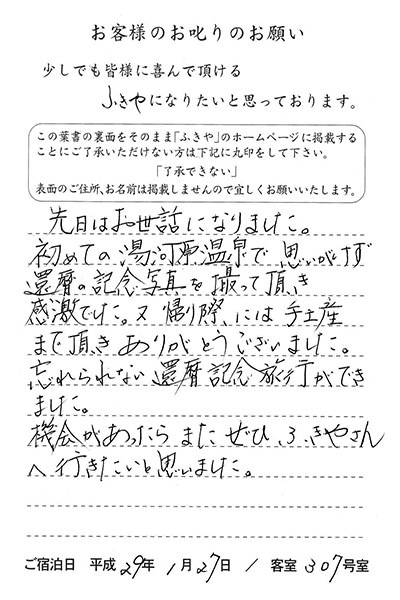 お客様のお叱りのお願い
少しでも皆様に喜んで頂ける
ふきやになりたいと思っております。
この葉書の裏面をそのまま「ふきや」のホームページに掲載する
ことにご了承いただけない方は下記に丸印をして下さい。
「了承できない」
表面のご住所、お名前は掲載しませんので宜しくお願いいたします。
先日はお世話になりました。
初めての湯河原温泉で思いがけず
還暦の記念写真を撮って頂き
感激でした。又帰り際には手土産
まで頂きありがとうございました。
忘れられない還暦記念旅行ができ
ました。
機会があったらまたぜひふきやさん
へ行きたいと思いました。
ご宿泊日 平成29年 1月27日 / 客室 307号室